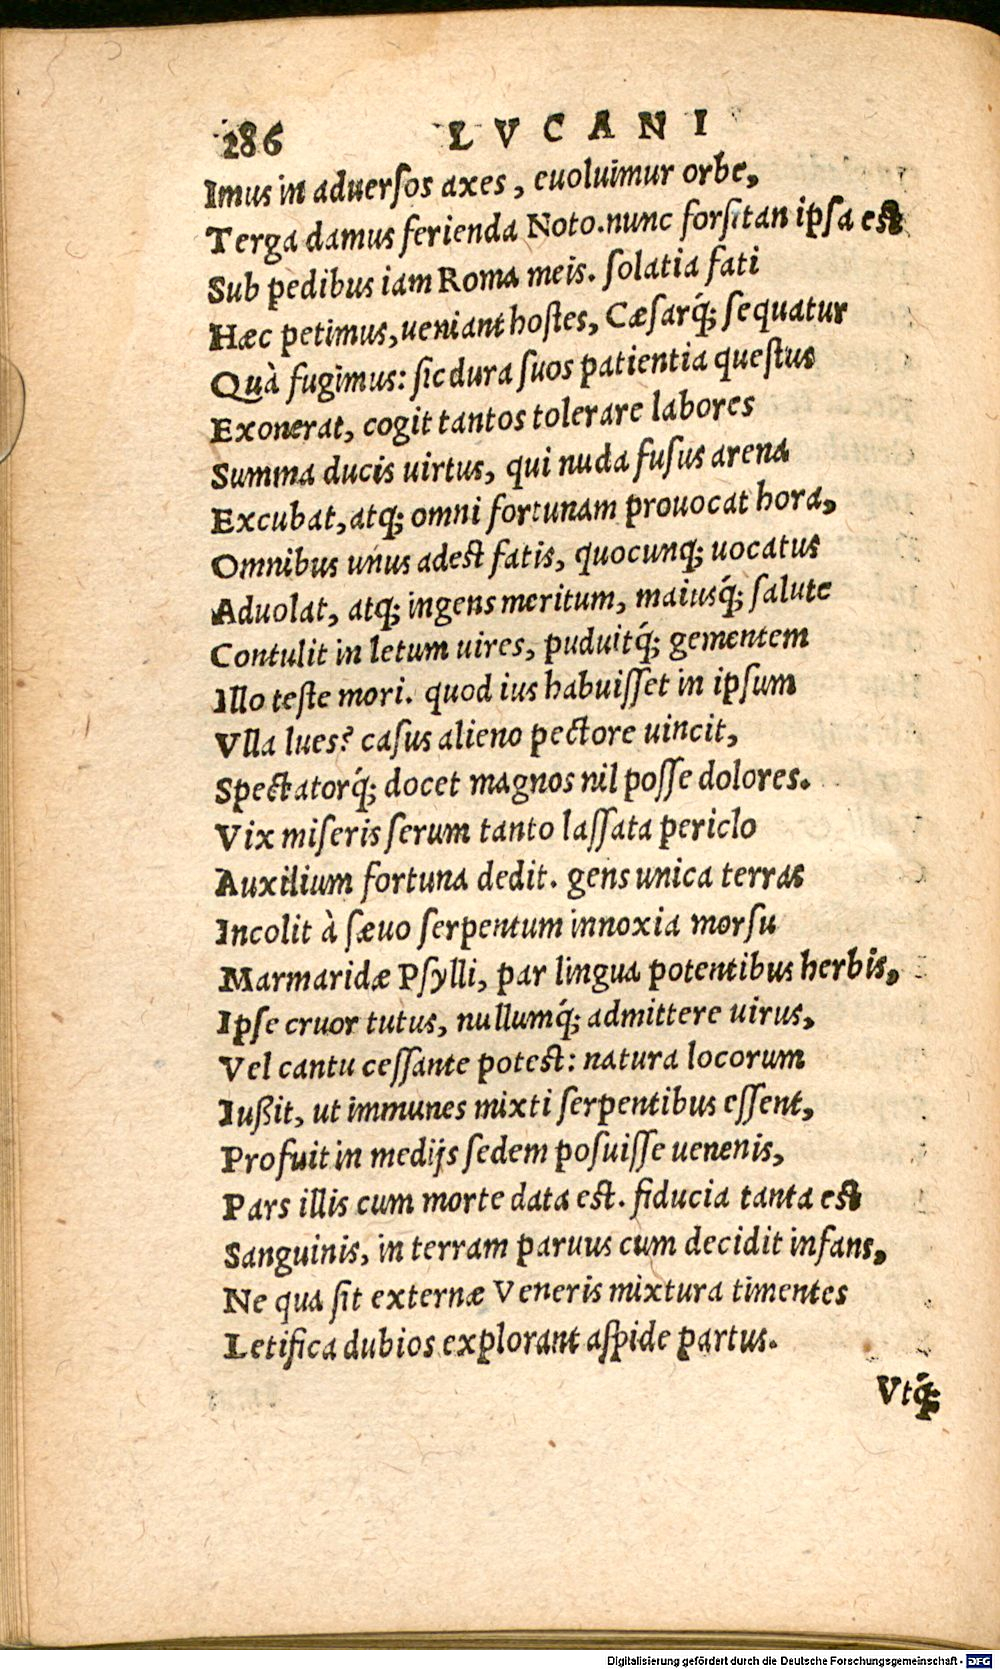 286 LVCANI
Imus in aduersos axes, euoluimur orbe,
Terga damus ferienda Noto. nunc forsitan ipsa est
Sub pedibus iam Roma meis. solatia fati
Hæc petimus, ueniant hostes, Cæsarq́; sequatur
Quà fugimus: sic dura suos patientia questus
Exonerat, cogit tantos tolerare labores
Summa ducis uirtus, qui nuda fusus arena
Excubat, atq; omni fortunam prouocat hora,
Omnibus unus adest fatis, quocunq; uocatus
Aduolat, atq; ingens meritum, maiusq́; salute
Contulit in letum uires, puduitq́; gementem
Illo teste mori. quod ius habuisset in ipsum
Vlla lues? casus alieno pectore uincit,
Spectatorq́; docet magnos nil posse dolores.
Vix miseris serum tanto lassata periclo
Auxilium fortuna dedit. gens unica terras
Incolit à sæuo serpentum innoxia morsu
Marmaridæ Psylli, par lingua potentibus herbis,
Ipse cruor tutus, nullumq́; admittere uirus,
Vel cantu cessante potest: natura locorum
Iußit, ut immunes mixti serpentibus essent,
Profuit in medijs sedem posuisse uenenis,
Pars illis cum morte data est. fiducia tanta est
Sanguinis, in terram paruus cum decidit infans,
Ne qua sit externæ Veneris mixtura timentes
Letifica dubios explorant aspide partus.
Vtq́;
Digitalisierung gefördert durch die Deutsche Forschungsgemeinschaft - DFG